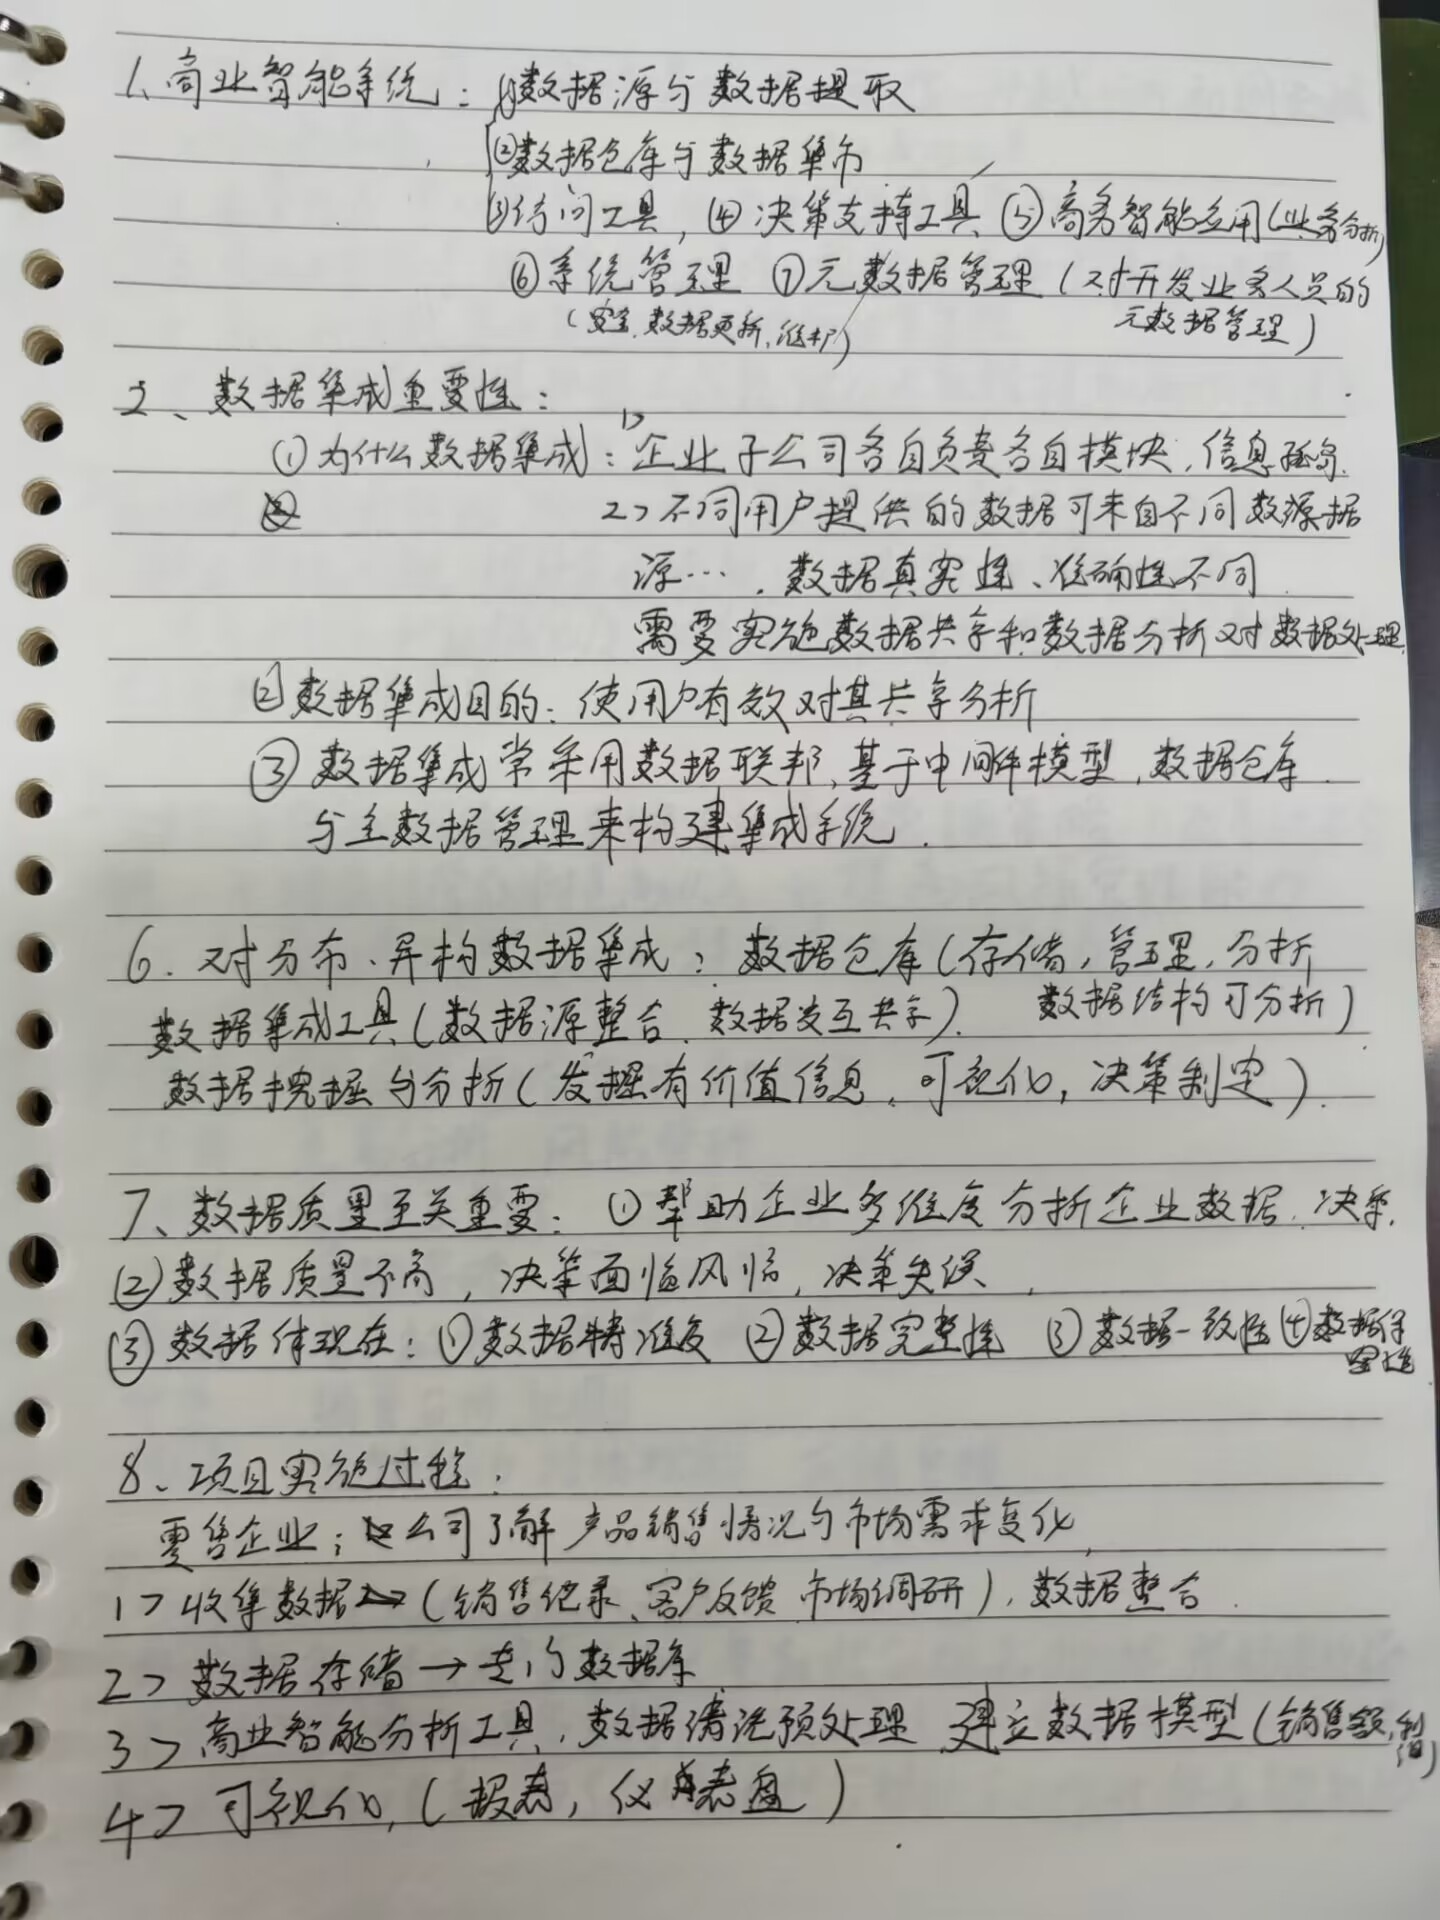 1、商业智能系统：①数据源与数据提取
②数据仓库与数据集市
③访问工具，④决策支持工具 ⑤商务智能应用(业务分析)
⑥系统管理 ⑦元数据管理（对开发业务人员的
（安全.数据更新,维护） 元数据管理）
2、数据集成重要性：
①为什么数据集成：1>企业子公司各自负责各自模块，信息孤岛.
2>不同用户提供的数据可来自不同数源据
源…，数据真实性、准确性不同
需要实施数据共享和数据分析对数据处理.
②数据集成目的：使用户有效对其共享分析
③数据集成常采用数据联邦,基于中间件模型，数据仓库
与主数据管理来构建集成系统.
6.对分布、异构数据集成：数据仓库(存储，管理，分析
数据集成工具(数据源整合、数据交互共享). 数据结构可分析)
数据挖掘与分析(发掘有价值信息，可视化，决策制定).
7、数据质量至关重要：①帮助企业多维度分析企业数据.决策.
②数据质量不高，决策面临风险，决策失误，
③数据体现在：①数据精准度 ②数据完整性 ③数据一致性 ④数据
8、项目实施过程：
零售企业：公司了解产品销售情况与市场需求变化，
1>收集数据(销售纪录、客户反馈 市场调研)，数据整合.
2>数据存储→专门数据库
3>商业智能分析工具，数据清洗预处理 建立数据模型(销售额,利润)
4>可视化,(报表，仪表盘)